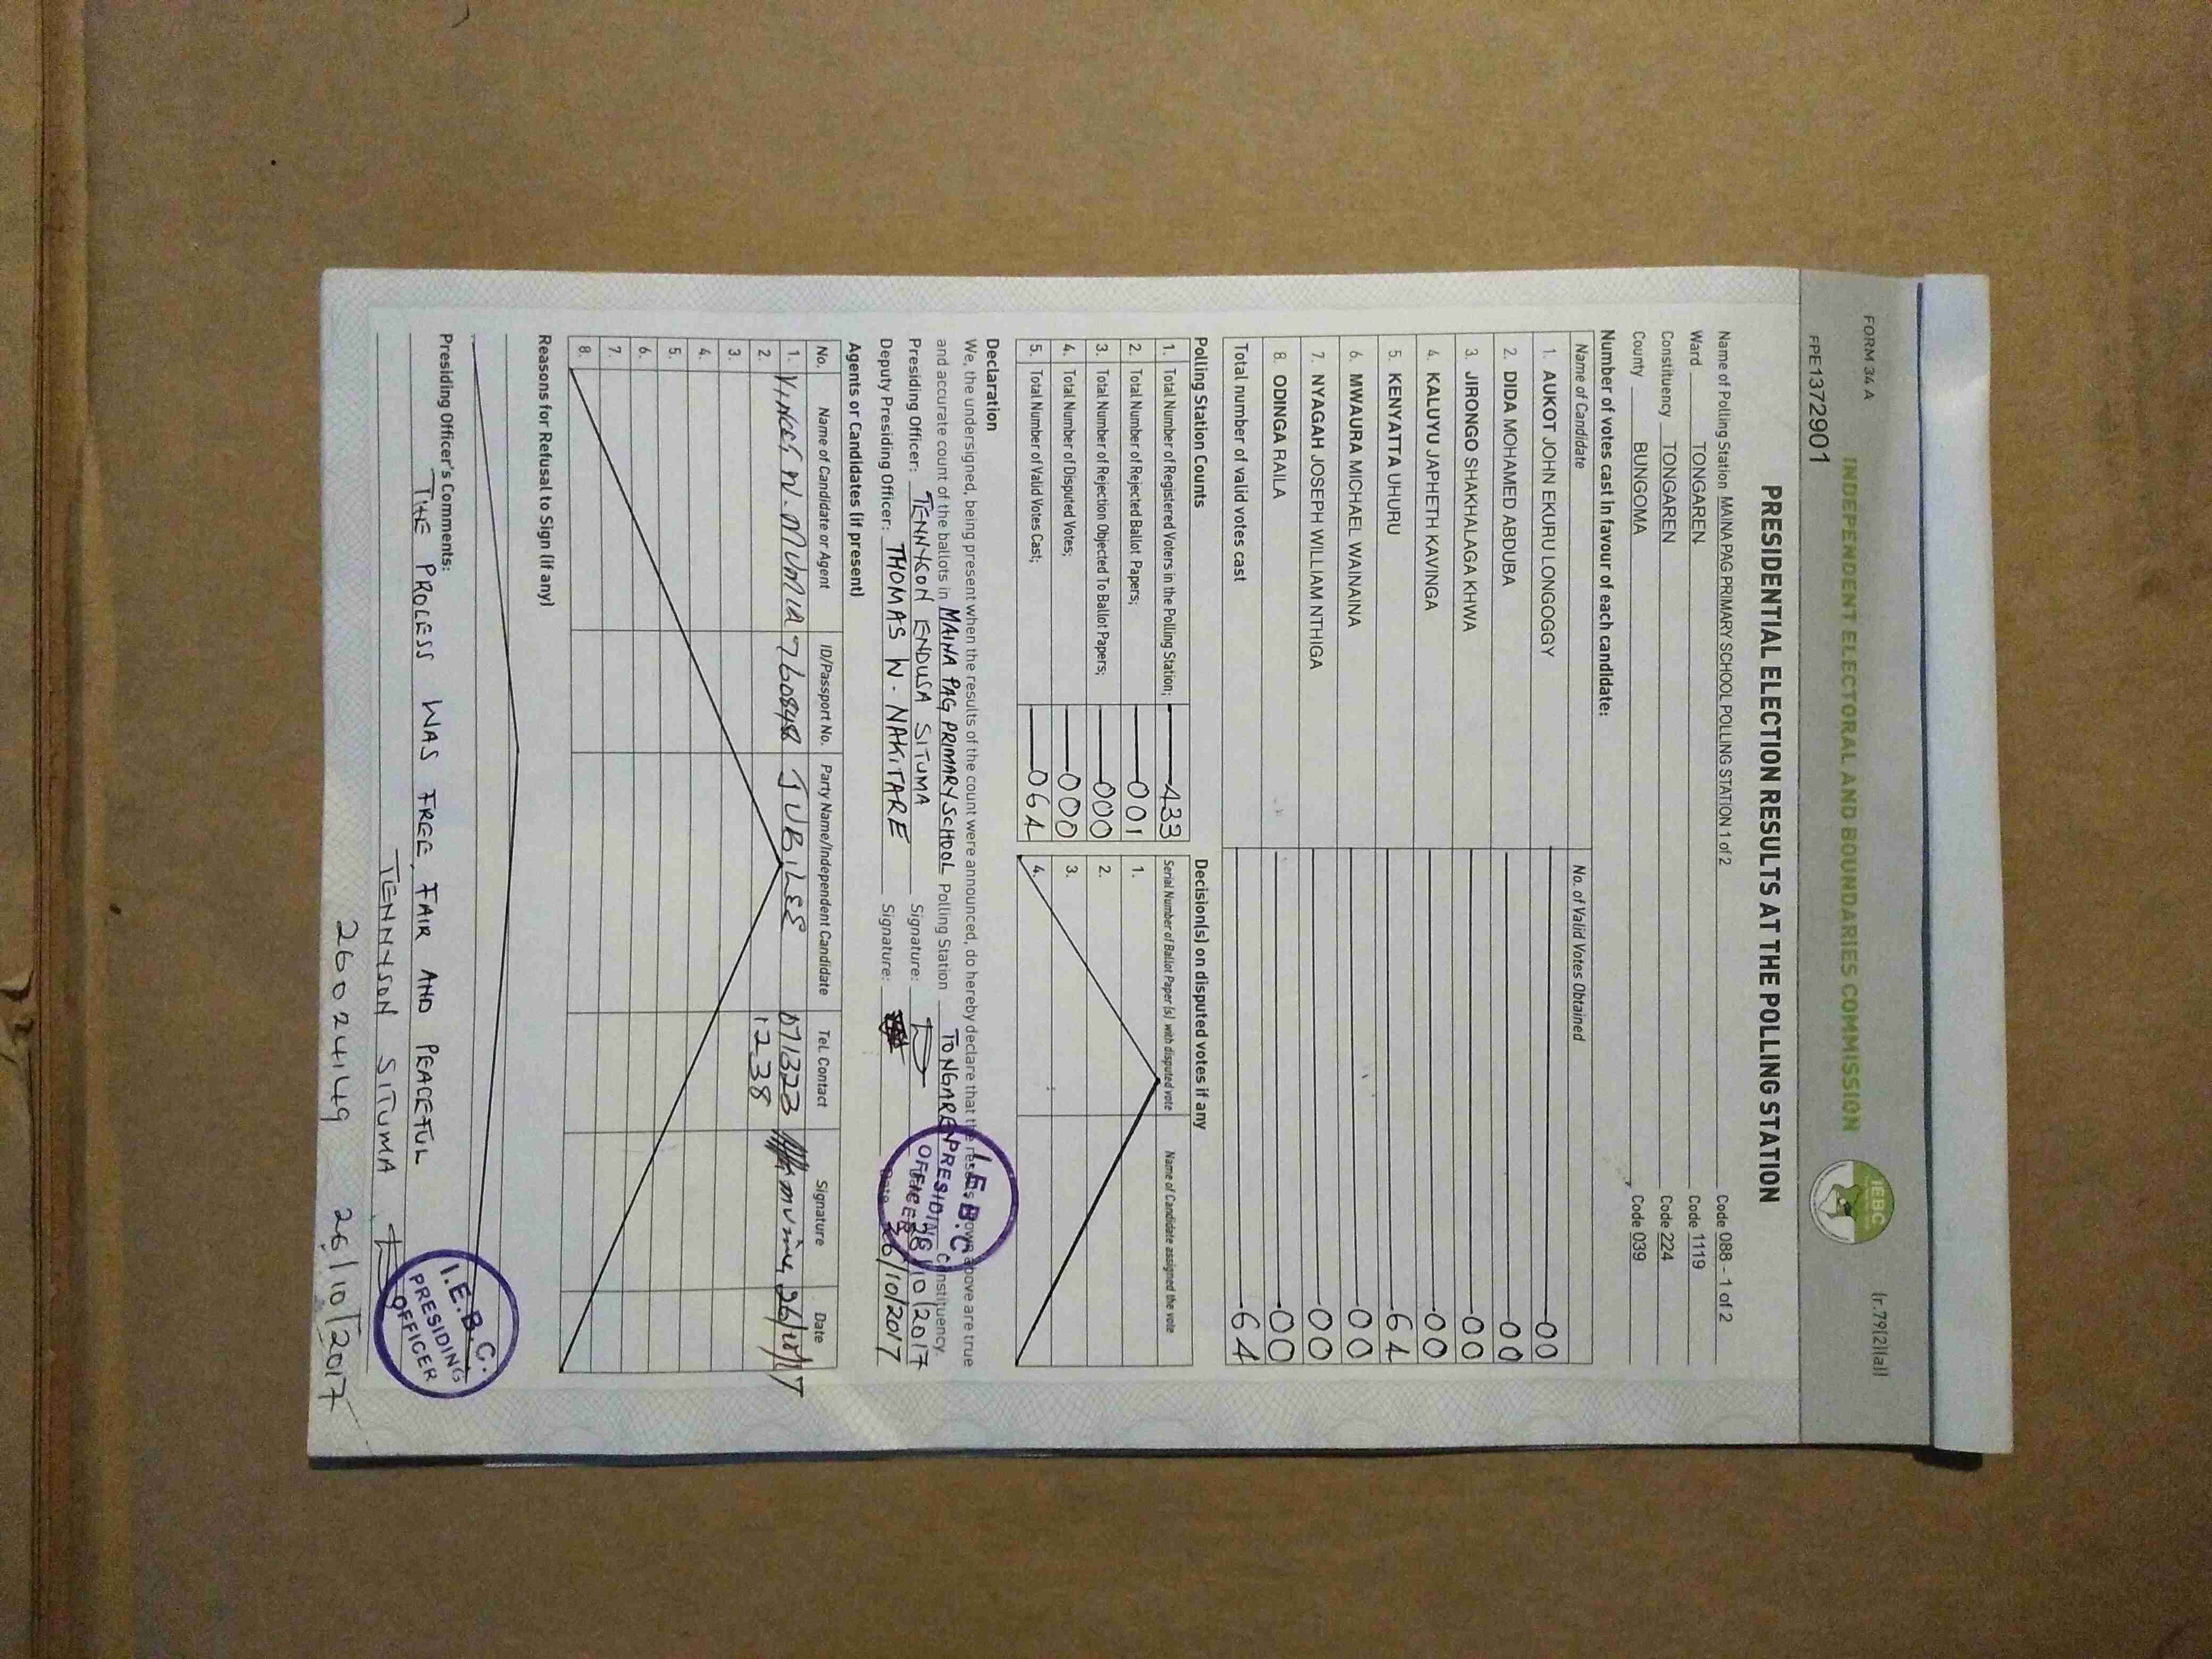 FORM 34 A
(r.79(2)(a))
INDEPENDENT ELECTORAL AND BOUNDARIES COMMISSION
IEBC
FPE1372901
PRESIDENTIAL ELECTION RESULTS AT THE POLLING STATION
Name of Polling Station MAINA PAG PRIMARY SCHOOL POLLING STATION 1 of 2 Code 088 - 1 of 2
Ward TONGAREN Code 1119
Constituency TONGAREN Code 224
County BUNGOMA Code 039
Number of votes cast in favour of each candidate:
Name of Candidate No. of Valid Votes Obtained
1. AUKOT JOHN EKURU LONGOGGY 00
2. DIDA MOHAMED ABDUBA 00
3. JIRONGO SHAKHALAGA KHWA 00
4. KALUYU JAPHETH KAVINGA 00
5. KENYATTA UHURU 64
6. MWAURA MICHAEL WAINAINA 00
7. NYAGAH JOSEPH WILLIAM NTHIGA 00
8. ODINGA RAILA 00
Total number of valid votes cast 64
Polling Station Counts
1. Total Number of Registered Voters in the Polling Station; 433
2. Total Number of Rejected Ballot Papers; 001
3. Total Number of Rejection Objected To Ballot Papers; 000
4. Total Number of Disputed Votes; 000
5. Total Number of Valid Votes Cast; 064
Decision(s) on disputed votes if any
Serial Number of Ballot Paper (s) with disputed vote Name of Candidate assigned the vote
1.
2.
3.
4.
Declaration
We, the undersigned, being present when the results of the count were announced, do hereby declare that the results shown above are true
and accurate count of the ballots in MAINA PAG PRIMARY SCHOOL Polling Station TONGAREN Constituency.
Presiding Officer: TENNYSON ENDUSA SITUMA Signature: 26/10/2017
Deputy Presiding Officer: THOMAS W. NAKITARE Signature: Date 26/10/2017
I.E.B.C
PRESIDING
OFFICER
Agents or Candidates (if present)
No. Name of Candidate or Agent ID/Passport No. Party Name/Independent Candidate Tel. Contact Signature Date
1. JUBILEE 071323 26/10/17
2. 1238
3.
4.
5.
6.
7.
8.
Reasons for Refusal to Sign (if any)
Presiding Officer's Comments:
THE PROCESS WAS FREE, FAIR AND PEACEFUL
TENNYSON SITUMA
26002449 26/10/2017
I.E.B.C.
PRESIDING
OFFICER